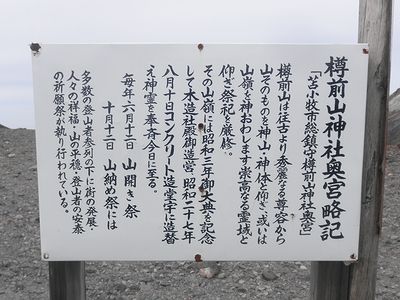 樽前山神社奥宮略記
「苫小牧市総鎮守樽前山神社奥宮」
樽前山は往古より秀麗なる尊容から
山そのものを神山・神体と仰ぎ或いは
山嶺を神おわします崇高なる霊域と
仰ぎ祭祀を厳修。
その山嶺には昭和三年御大典を記念
して木造社殿御造営、昭和二十七年
八月十日コンクリート造堂宇に造替
え神霊を奉斉今日に至る。
毎年六月十二日 山開き祭
十月十二日 山納め祭には
多数の登山者参列の下に街の発展・
人々の祥福・山の平穏・登山者の安泰
の祈願祭が執り行われている。